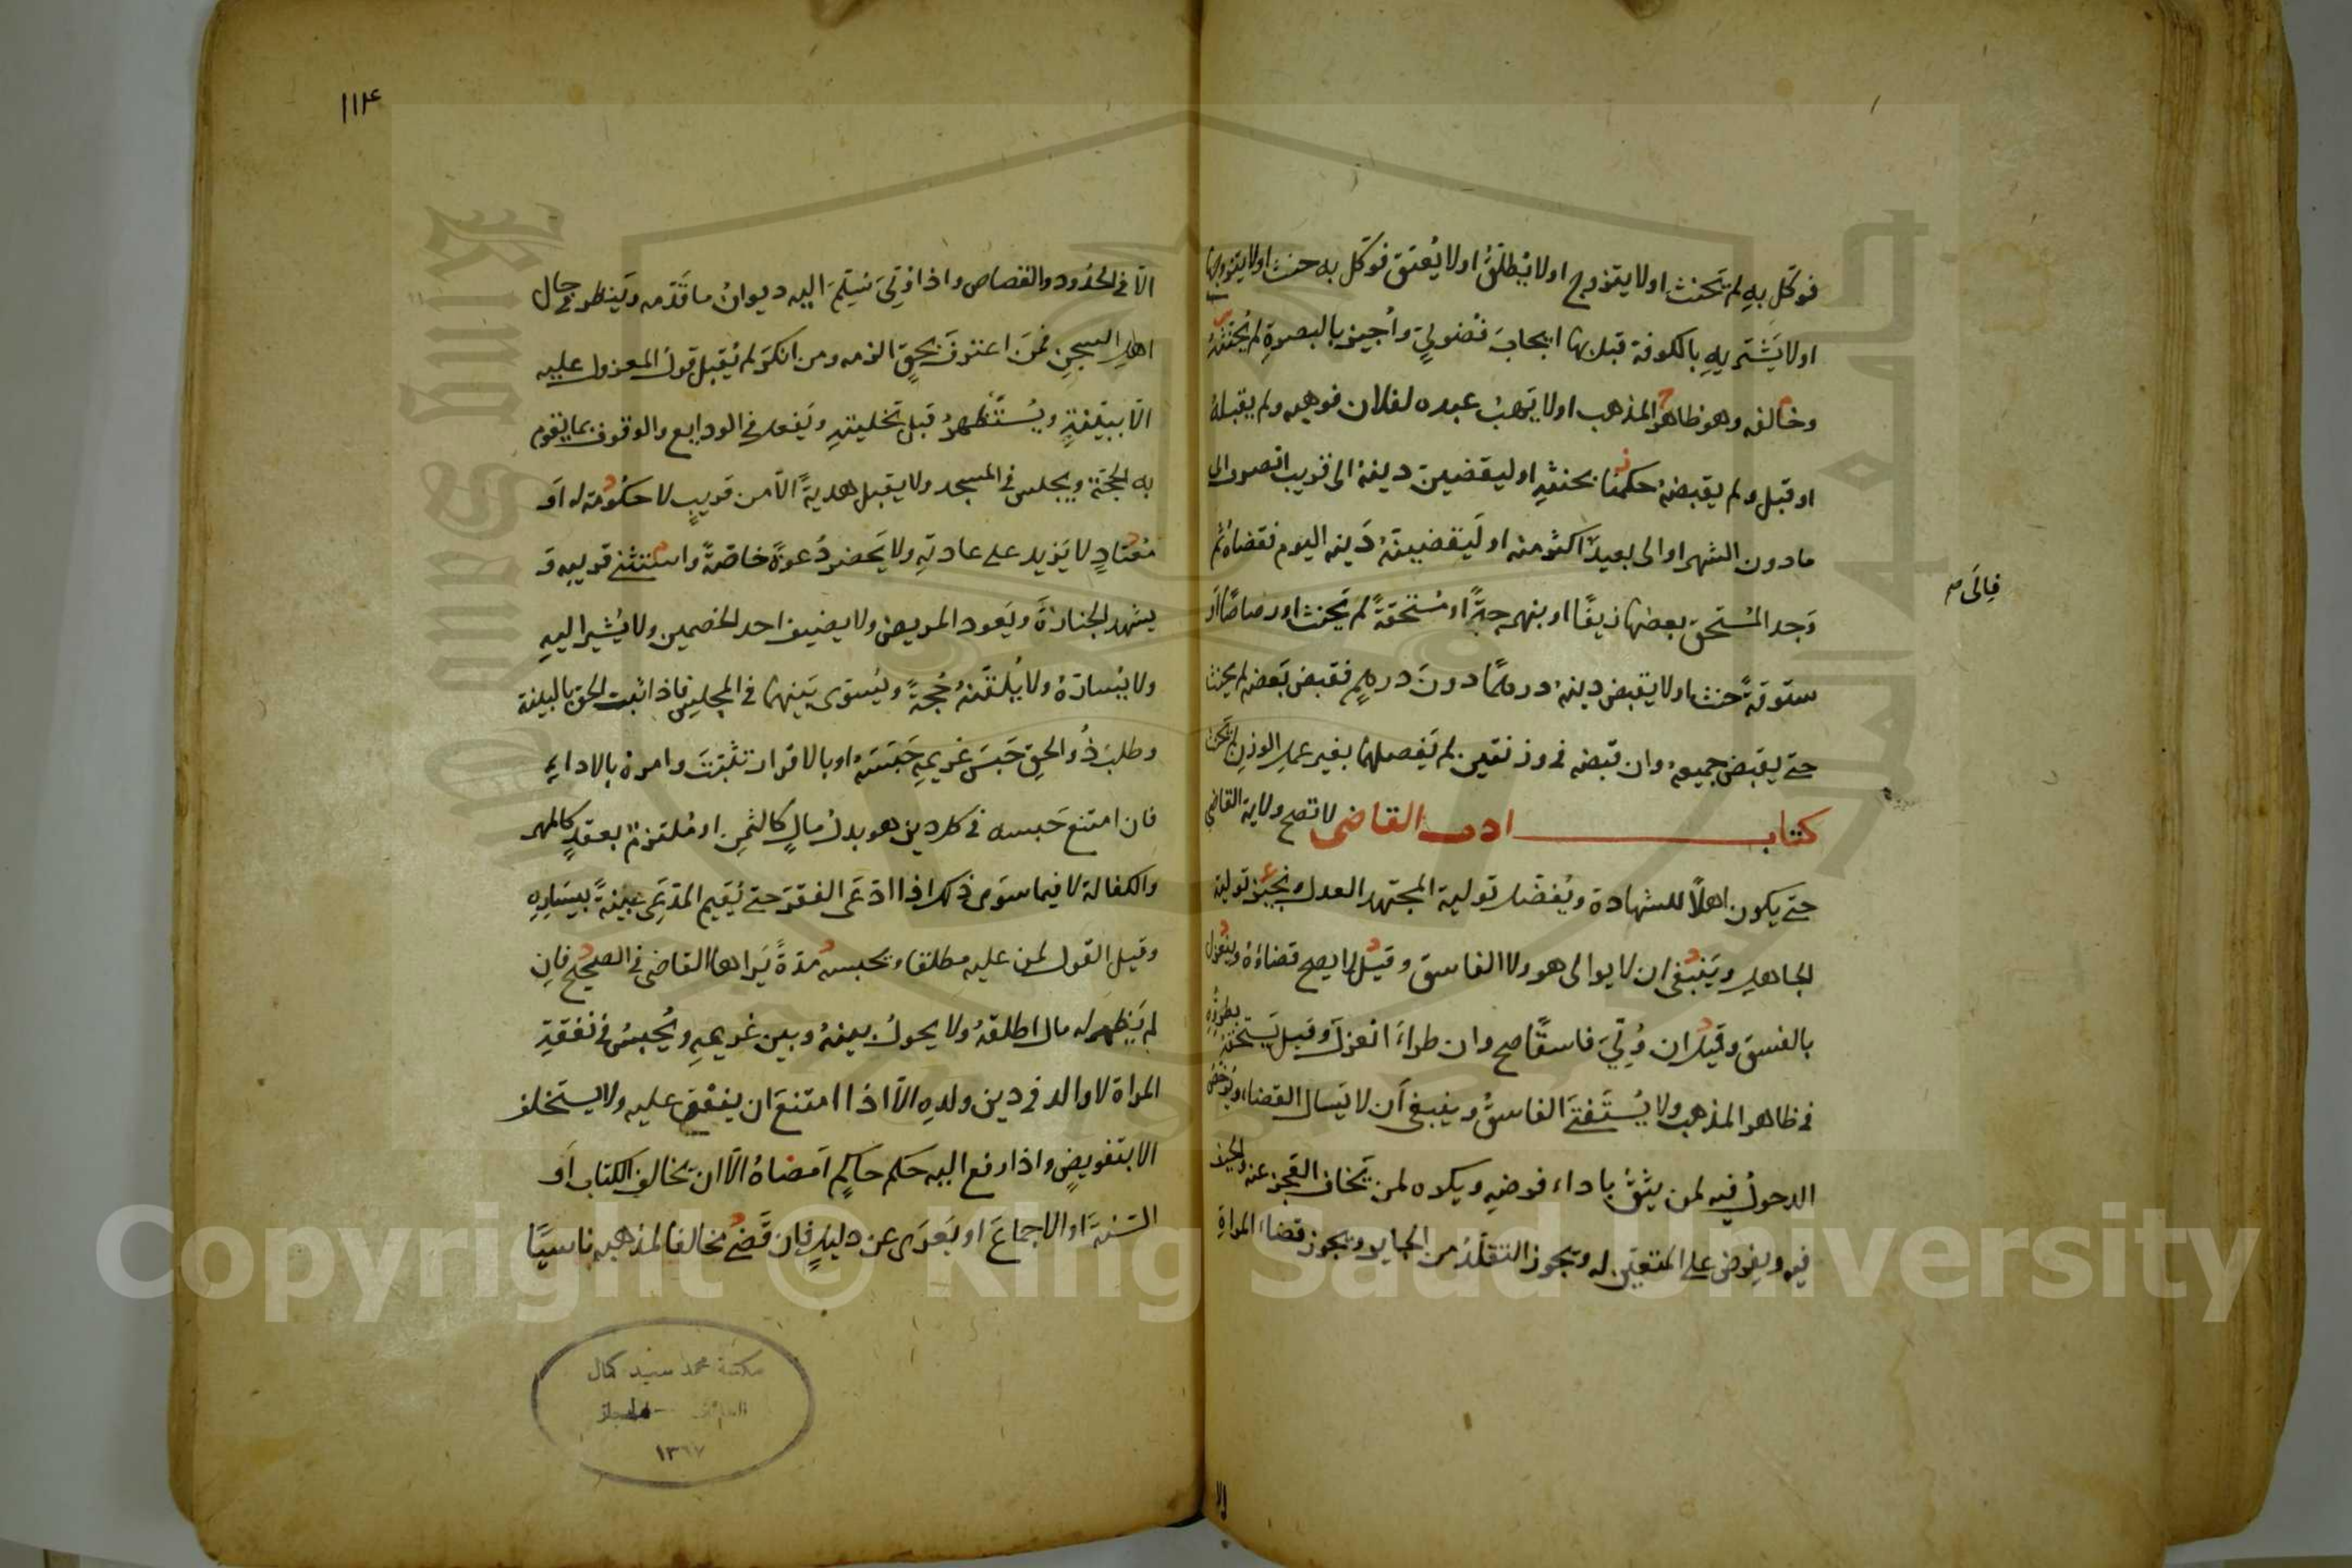 فوكّل به لم يحنث اولا يتزوج اولا يُطلّقُ اولا يُعتق فوكّل به حنث اولا يتزوجها
اولا يَشتريهِ بالكوفة قبلها ايجابَ فضوليّ واُجيز بالبصرةِ لم يُحنّثهُ
وخالفه وهو ظاهر المذهب اولا يَهبُ عبده لفلان فوهبه ولم يقبلهُ
او قبل ولم يقبضهُ حكمنا بحنثهِ او ليقضين دينهُ الى قريب انصرف الى
مادون الشهر او الى بعيدٍ اكثر منه او لَيَقضينهُ دَينه اليوم فقضاهُ ثم
وَجد المُستحق بعضها زيفًا او بنهرجةً او مُستحقةً لم يَحنث اورصاصًا اَو
ستوقةً حنث اولا يقبض دينهُ درهمًا دونَ درهمٍ فقبض بَعضه لم يحنث
حتى يقبض جميعهُ وان قبضه فى وزنتين لم يَفصلهما بغير عملِ الوزنِ لم يَحنث
كتاب ادب القاضى لا تصح ولاية القاضي
حتى يكون اهلًا للشهادة ويُفضّل تولية المجتهد العدل ونجيز تولية
الجاهلِ ويَنبغى ان لا يوالى هو ولا الفاسق وقيل لا يصح قضاؤهُ وينعزل
بالفسق وقيل ان وُلّيَ فاسقًا صح وان طراَ انعزلَ وقيل يَستحقه بطروّه
فى ظاهر المذهب ولا يُستَفتَى الفاسقُ وينبغى اَن لا يَسال القضاء ويُرخّصُ
الدخولُ فيه لمن يثقُ باداء فرضهِ ويكره لمن يَخاف العجز عنه والحيف
فيه ويفرض على المتعيّن له ويجوز التقلّدُ من الجاير ويجوز قضاءُ المراةِ
الا
١١٤
الّا فى الحدُود والقصاص واذا وُلّيَ سُلّمَ اليه ديوانُ ما قَدّمه ويَنظر فى حال
اهلِ السجنِ فمَن اعترفَ بحقٍ الزمه ومن انكرَ لم يُقبل قولُ المعزول عليه
الّا ببيّنةٍ ويُستَظهرُ قبل تخليتهِ ويَفعل فى الودايع والوقوف بما يقوم
به الحجة ويجلس فى المسجد ولا يقبل هديةً الّا من قريبٍ لا حكُومة له اَو
مُعتادٍ لا يَزيد على عادتهِ ولا يَحضر دُعوةً خاصّةً واستثنى قريبه وَ
يشهد الجنازةَ ويَعود المريض ولا يضيف احد الخصمين ولا يُشير اليهِ
ولا يُسارّهُ ولا يُلقّنهُ حُجةً ويُسوّى بَينهما فى المجلسِ فاذا ثبت الحق بالبينة
وطلبَ ذُو الحقِ حَبسَ غريمهِ حَبَسَهُ او بالاقرار تثبّتَ وامرهُ بالاداءِ
فان امتنع حَبسه فى كل دينٍ هو بدلُ مالٍ كالثمنِ او مُلتزمٌ بعقدٍ كالمهر
والكفالة لا فيما سوَى ذلك اذا ادّعَى الفقرَ حتى يُقيم المدّعى بينةً بيَسَارِهِ
وقيل القول لمن عليه مطلقا ويحبسه مُدةً يَراها القاضى فى الصحيح فاِن
لم يَظهر له مال اطلقهُ ولا يحولُ بينهُ وبين غريمهِ ويُحبسُ فى نفقةِ
المراة لا والد فى دين ولدهِ الّا اذا امتنعَ ان ينفق عليه ولا يستخلف
الا بتفويضٍ واذا رفع اليه حكم حاكمٍ اَمضاهُ الّا ان يخالف الكتاب اَو
السّنةَ او الاجماعَ او يَعرَى عن دليلٍ فان قَضى مخالفا لمذهبه ناسيًا
مكتبة محمد سيد كمال
١٣٦٧